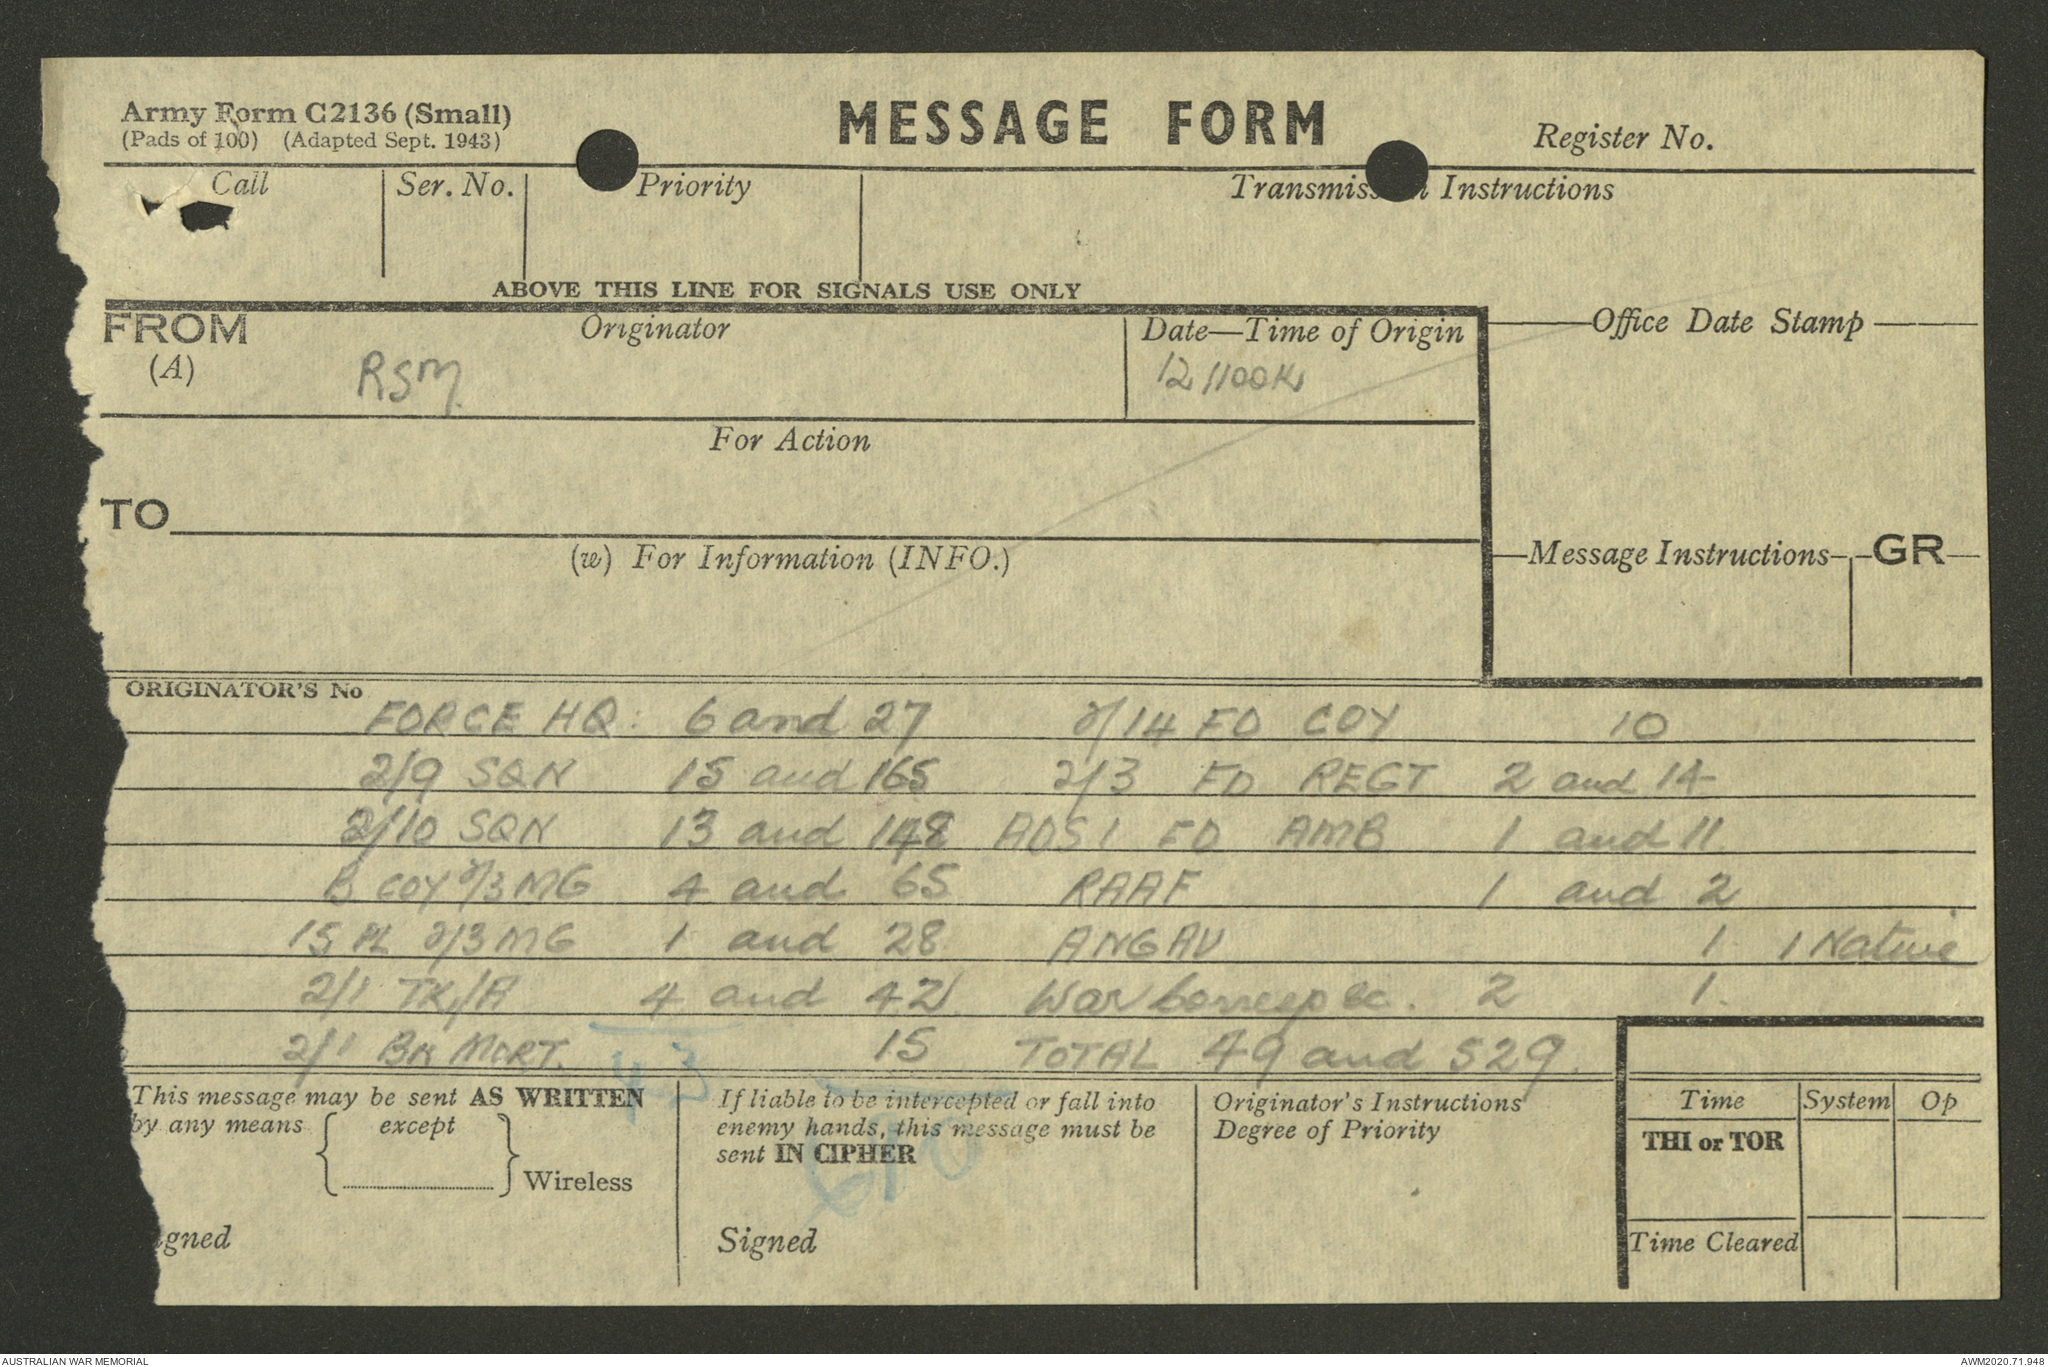 Army Form C2136 (Small)
(Pads of 100) (Adapted Sept. 1943)
MESSAGE FORM
Register No.
Call
Ser. No.
Priority
Transmiss n Instructions
ABOVE THIS LINE FOR SIGNALS USE ONLY
FROM
(A)
Originator
RSM
Date—Time of Origin
12 1100K
Office Date Stamp
For Action
TO
(w) For Information (INFO.)
Message Instructions
GR
ORIGINATOR'S No
FORCE HQ: 6 and 27 2/14 FD COY 10
2/9 SQN 15 and 165 2/3 FD REGT 2 and 14
2/10 SQN 13 and 148 ADS 1 FD AMB 1 and 11
B COY 2/3 MG 4 and 65 RAAF 1 and 2
15 PL 2/3 MG 1 and 28 ANGAU 1 1 Native
2/1 TK/A 4 and 42 War Corresp &c. 2 1.
2/1 BN MORT. 15 TOTAL 49 and 529.
43
This message may be sent AS WRITTEN
by any means except
Wireless
igned
If liable to be intercepted or fall into
enemy hands, this message must be
sent IN CIPHER
Signed
Originator's Instructions
Degree of Priority
Time System Op
THI or TOR
Time Cleared
AUSTRALIAN WAR MEMORIAL
AWM2020.71.948